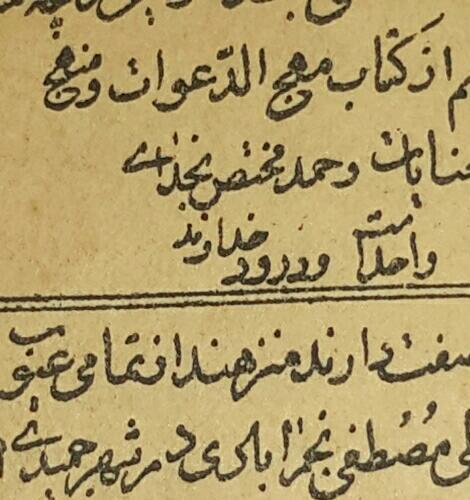 م از کتاب مهج الدّعوات و منهج
عنایات و حمد مختص بخدای
واحد است و درود خداوند
صفت دارنده منزهند از تمامی عیوب
مُصْطفی نجم ابادی در شهر